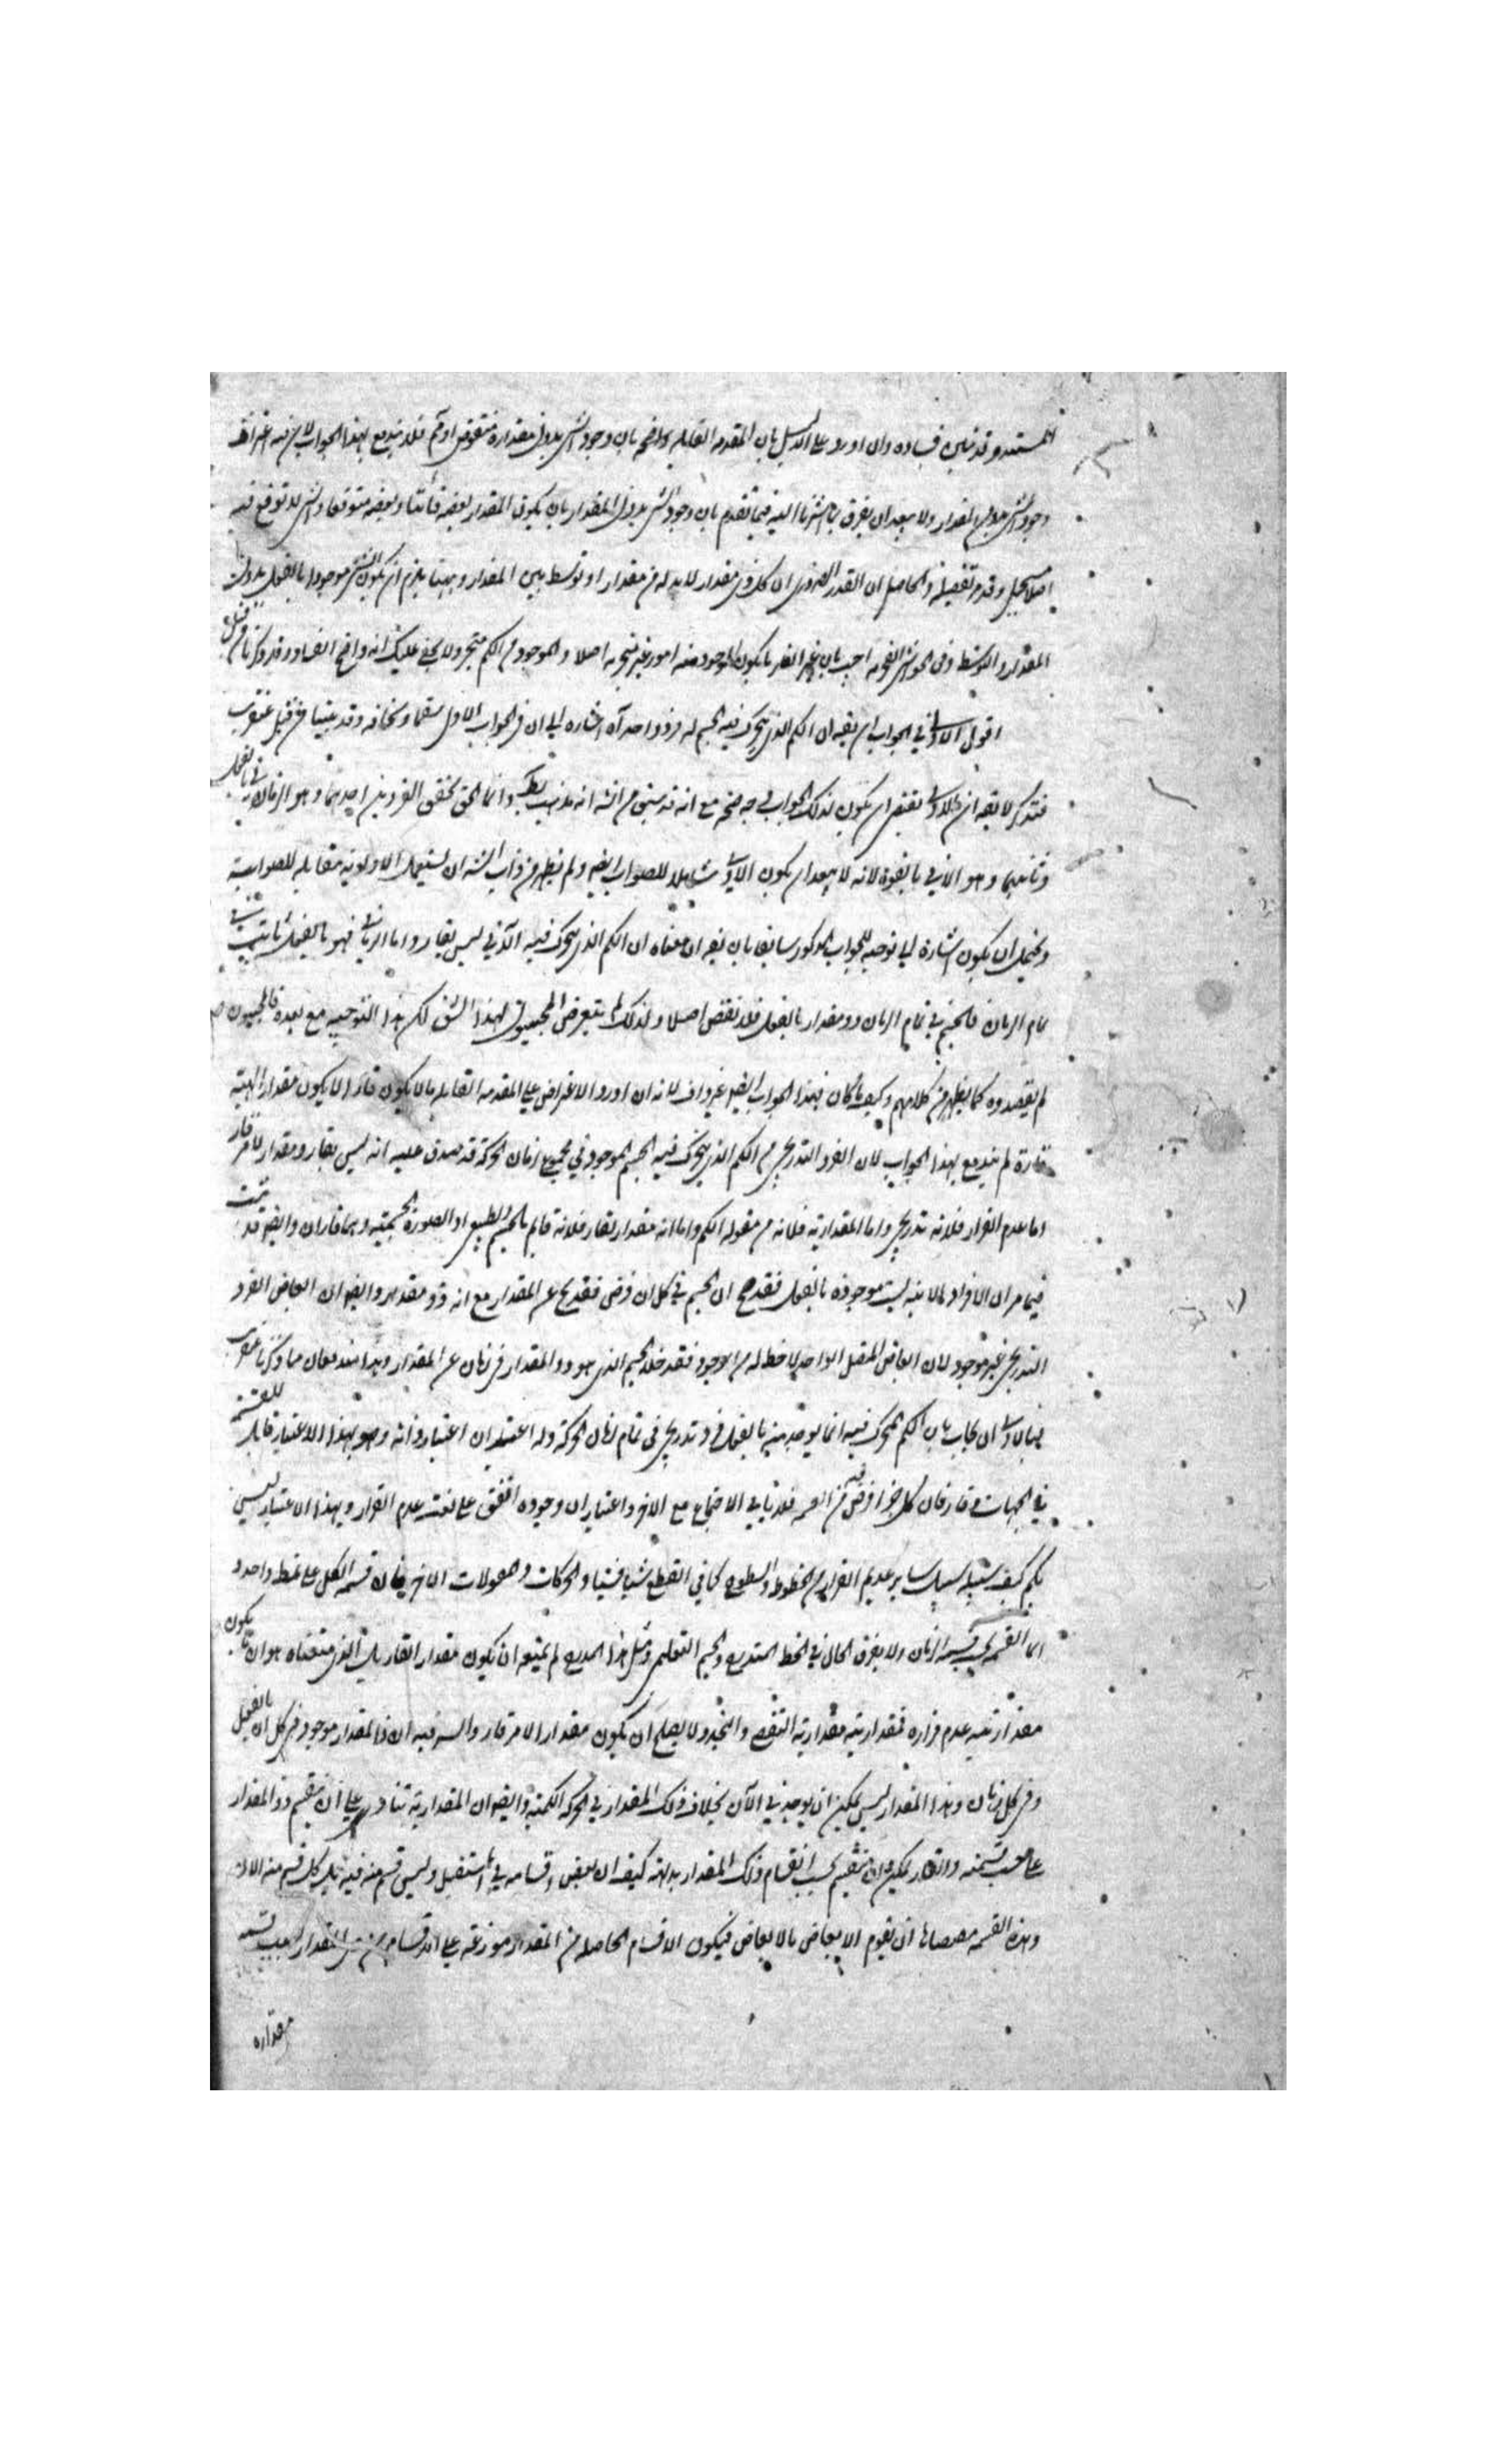 المستند وقد تبين فساده وان اورد على الدليل بان المقدمه القايله بان وجود الشئ بدون مقداره منقوض او فلا يندفع بهذا الجواب لان فيه اعتراف
وجود الشئ بدون المقدار ولا يبعد ان يفرق بما اشرنا اليه فيما تقدم بان وجود الشئ بدون المقدار بان يكون المقدار بعضه فائتا وبعضه متوقعا والشئ لا توقع فيه
اصلا مستحيل وقد مر تفصيله والحاصل ان القدر الضرورى ان كل ذى مقدار لابد له من مقدار او توسط بين المقدار وههنا يلزم ان يكون الشئ موجودا بالفعل بدون
المقدار والتوسط وفى الحواشى الفخريه اجيب بان غير القار يكون الموجود منه امور غير متجزيه اصلا والموجود من الكم متجز ولا يخفى عليك انه واضح الفساد وقد ذكرنا من قبل
اقول الاولى فى الجواب ان يقه ان الكم الذى يتحرك فيه الجسم له فرد واحد آه اشاره الى ان فى الجواب الاول سقما وسخافه وقد بينا من قبل عنقريب
فتذكر لا يقه ان الاولى يقتضى ان يكون لذلك الجواب وجه صحه مع انه قد سبق من الشه انه مذهب وانما الحق تحقق الفردين احدهما وهو الزمانى بالفعل
وثانيهما وهو الآنى بالقوة لانه لا يبعد ان يكون الاولى شاملا للصواب ايضه ولم يظهر من داب الشه ان يستعمل الاولويه مقابله للصوابية
ويحتمل ان يكون اشارة الى توجيه للجواب المذكور سابقا بان يقه ان معناه ان الكم الذى يتحرك فيه الآنى ليس بقار واما الزمانى فهو بالفعل ثابت فى
تمام الزمان فالجسم فى تمام الزمان ذو مقدار بالفعل فلا نقض اصلا ولذلك لم يتعرض المجيبون لهذا الشق لكن هذا التوجيه مع بعده فالمجيبون
لم يقصدوه كما يظهر من كلامهم وكيف ما كان فهذا الجواب ايضه غير واف لانه ان اورد الاعتراض على المقدمه القايله بما لا يكون قارا لا يكون مقدار الهيئة
قارة لم يندفع بهذا الجواب لان الفرد التدريجى من الكم الذى يتحرك فيه الجسم الموجود فى مجموع زمان الحركة قد صدق عليه انه ليس بقار ومقدار لامر قار
اما عدم القرار فلانه تدريجى واما المقدارية فلانه من مقوله الكم واما انه مقدار لقار فلانه قايم بالجسم الطبيعى او الصورة الجسمية وهما قاران وايضه قد ثبت
فيما مر ان الافراد الآنيه ليست موجوده بالفعل فقد صح ان الجسم فى كل ان فرض فقد يخلو عن المقدار مع انه ذو مقدار وايضه ان العارض الفرد
التدريجى غير موجود لان العارض المتصل الواحد لا حظ له من الوجود فقد خلا الجسم الذى هو ذو المقدار فى زمان عن المقدار وهذا مندفعان مما ذكرنا عنقريب
فالاولى ان يجاب بان الكم المتحرك فيه انما يوجد منه بالفعل فرد تدريجى فى تمام زمان الحركة وله اعتباران اعتبار ذاته وهو بهذا الاعتبار قابل للقسمة
فى الجهات وقار فان كل جزء فرض فيه من القسمه فلا يابى الاجتماع مع الاخر واعتبار ان وجوده اتفق على نعت عدم القرار وبهذا الاعتبار ليس
بكم كيف سبيله سبيل ساير عديم القرار من الخطوط والسطوح كما فى القطع شيئا فشيئا والحركات والمقولات الاخر فان قسمه الكل على نمط واحد و
انما القسمه بحسب قسمه الزمان ولا يفرق الحال فى الخط المتدرج والجسم التعليمى ومثل هذا التدريج لم يمتنع ان يكون مقدار القار بل الذى منعناه هو ان يكون
مقدارتيه عدم قراره فمقداريته مقداريه التقضى والتجدد لا يصلح ان يكون مقدار الامر قار والسر فيه ان ذا المقدار موجود فى كل ان بالفعل
وفى كل زمان وهذا المقدار ليس يمكن ان يوجد فى الآن بخلاف ذلك المقدار فى الحركه الكميه وايضه ان المقداريه تنادى على ان ينقسم ذو المقدار
على حسب قسمته والقار لا يمكن ان ينقسم بحسب انقسام ذلك المقدار بداهة كيف ان بعض اقسامه فى المستقبل وليس قسم منه فيه بل كل قسم منه الان
وهذه القسمه مقتضاها ان يقوم الابعاض بالابعاض فيكون الاقسام الحاصله من المقدار موزعه على الاقسام من ذى المقدار بحسب قسمة
مقداره